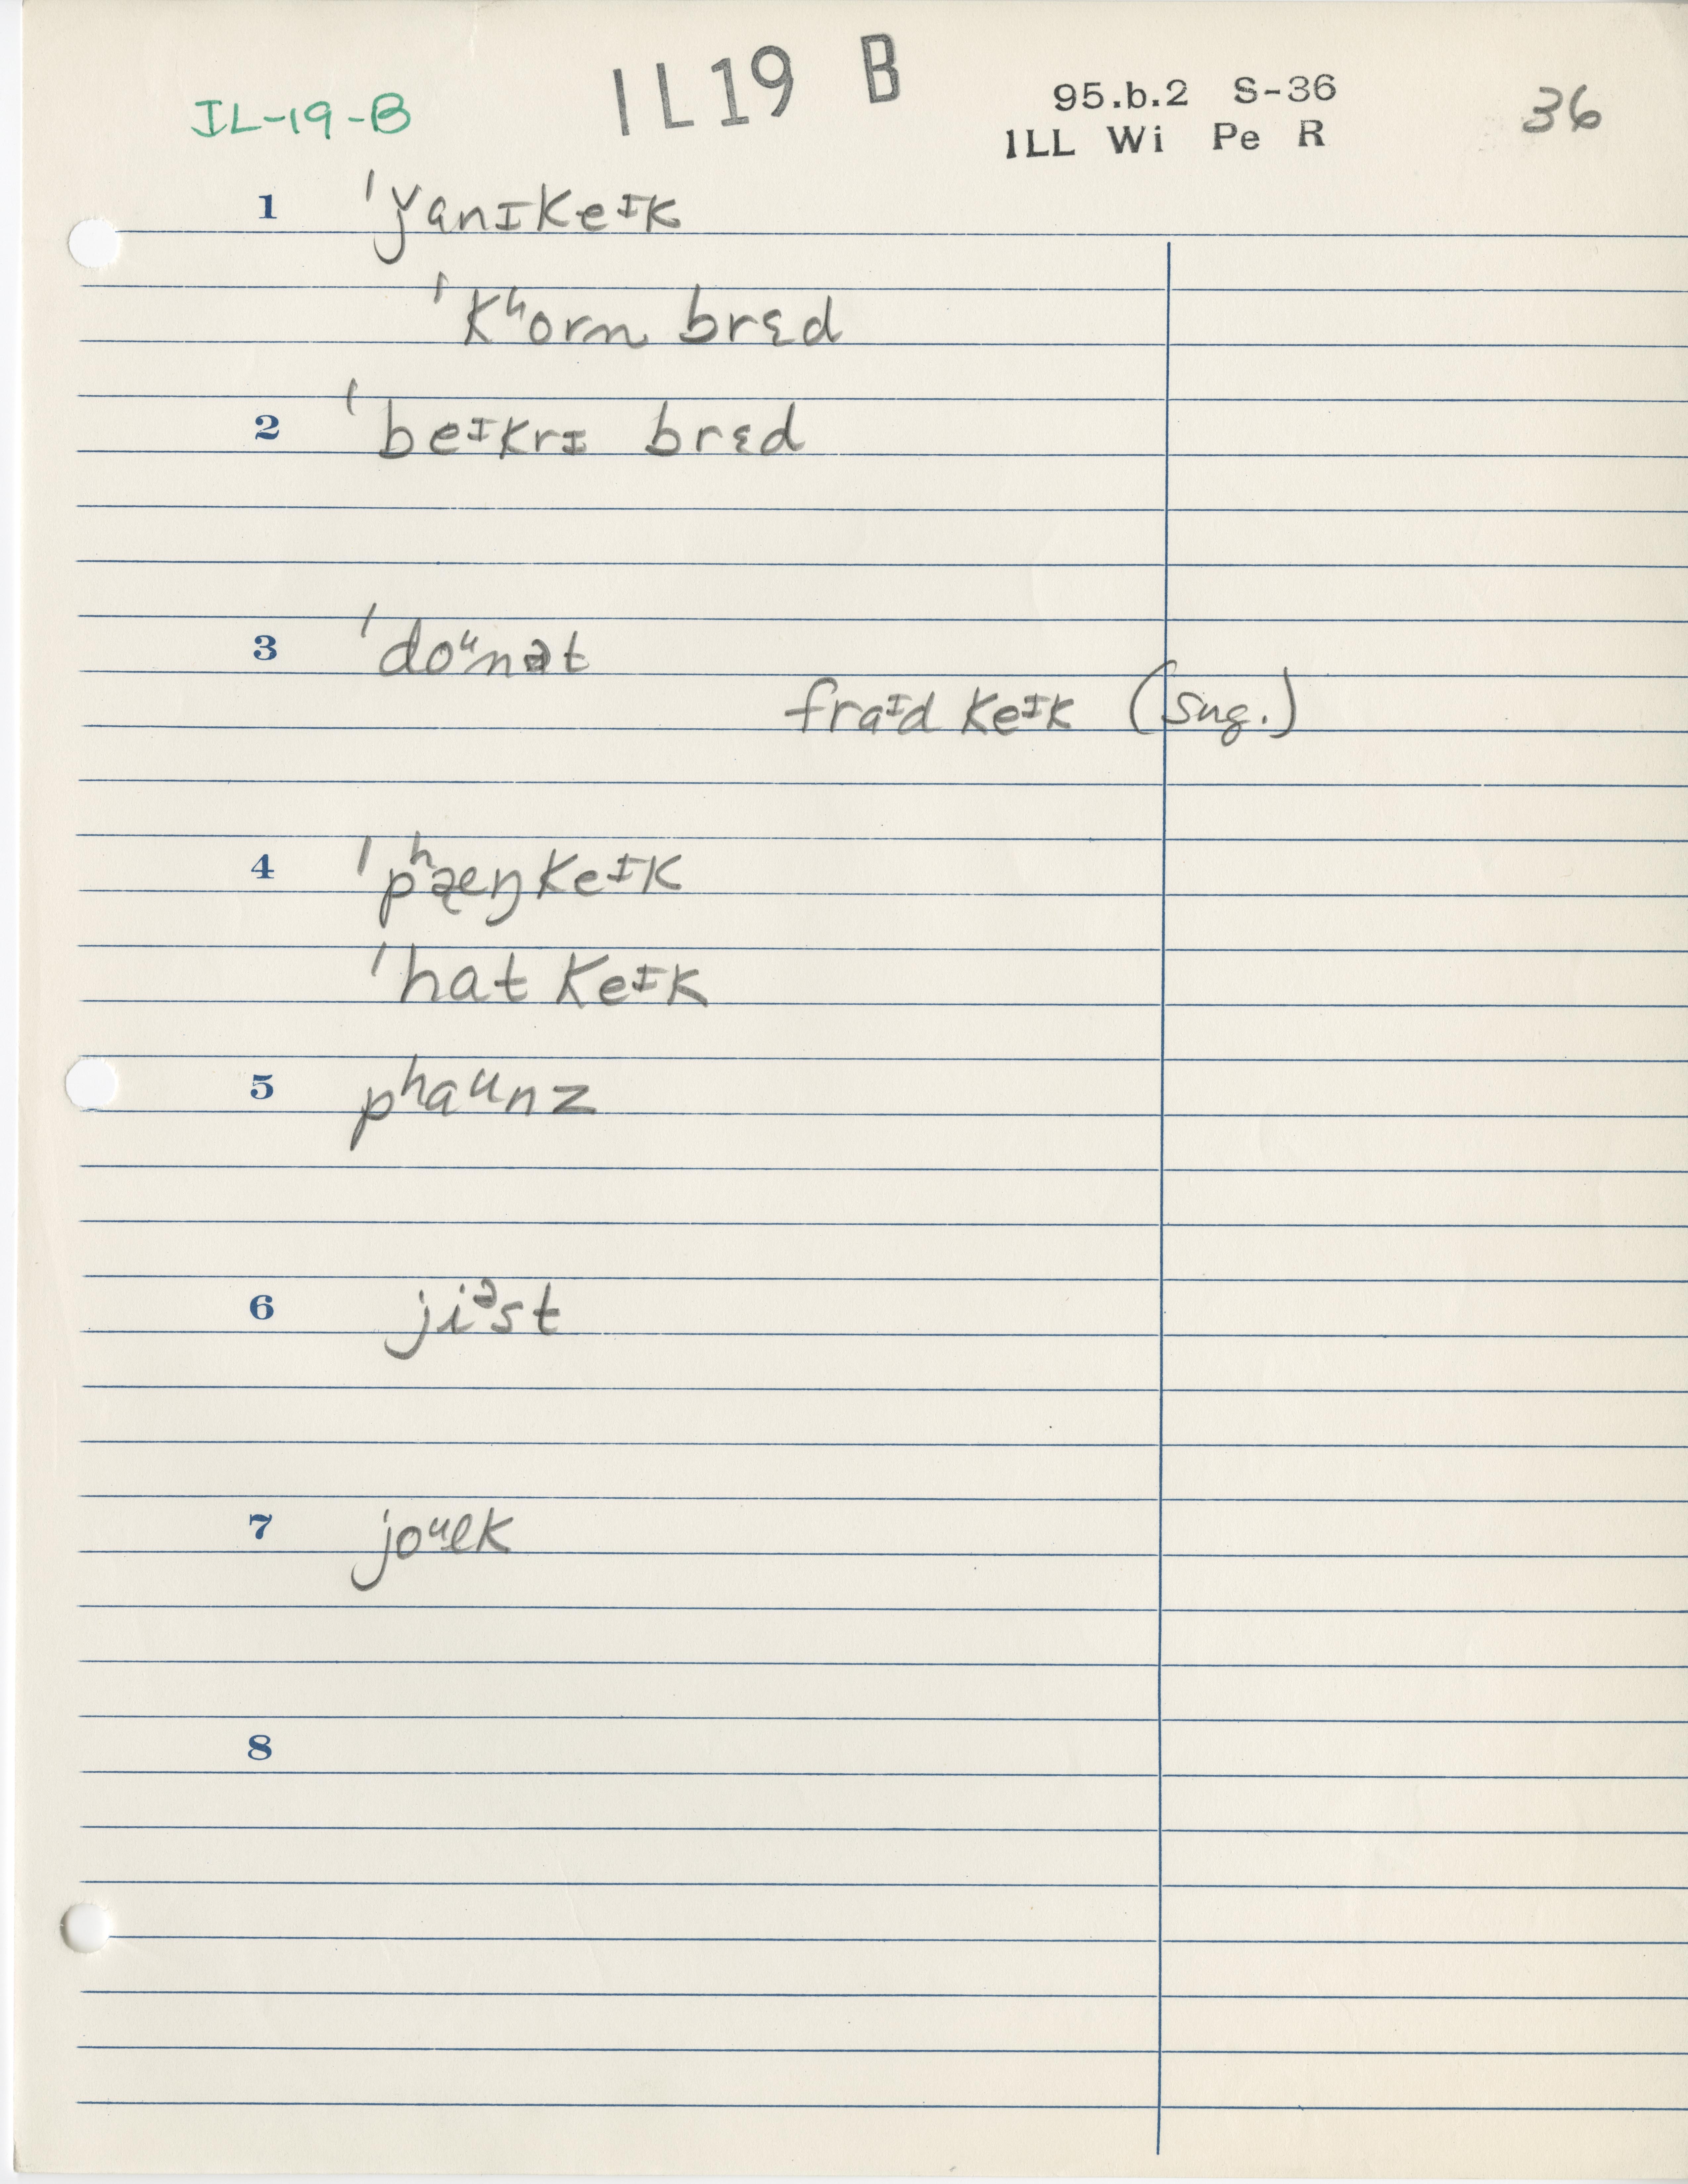 IL-19-B
IL19 B
95.b.2 S-36
ILL Wi Pe R
36
1 ˈǰanɪkeᴵk
ˈkʰorn brɛd
2 ˈbeᴵkrɪ brɛd
3 ˈdoᵘnət
fraᴵd keᴵk (sug.)
4 ˈpʰæŋkeᴵk
ˈhat keᴵk
5 pʰaᵘnz
6 jiᵊst
7 joᵘlk
8